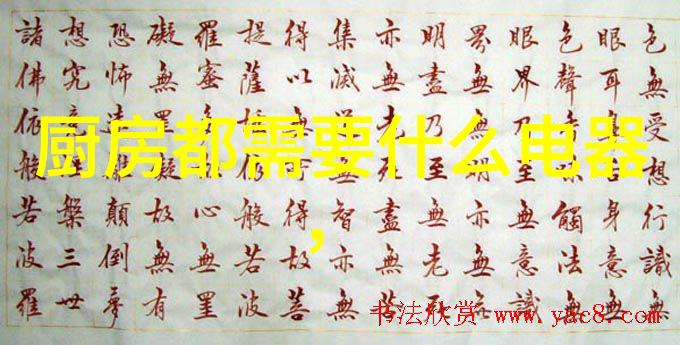 厨房都需要什么电器
，
色無受想行識無
眼耳身意無
色聲觸法無
眼界乃至無意識
界無無明亦無
明盡乃至無老
亦無老死盡無苦
集滅智亦無
得以無得故菩
提薩般若波
羅蜜心無罣
礙無罣礙故無有
恐怖遠顛倒夢
想究槃三世
諸佛依般若波羅
书法欣赏 www.yac8.com